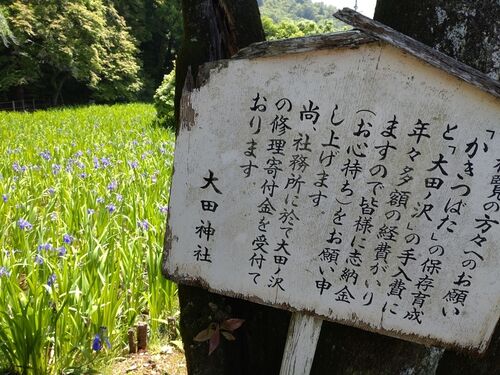 覧の方々へのお願い
「かきつばた」の保存育成
と「大田ノ沢」の手入費に
年々多額の経費がいり
ますので皆様に志納金
(お心持ち)をお願い申
し上げます。
尚、社務所に於て大田ノ沢
の修理寄付金を受付て
おります。
大田神社